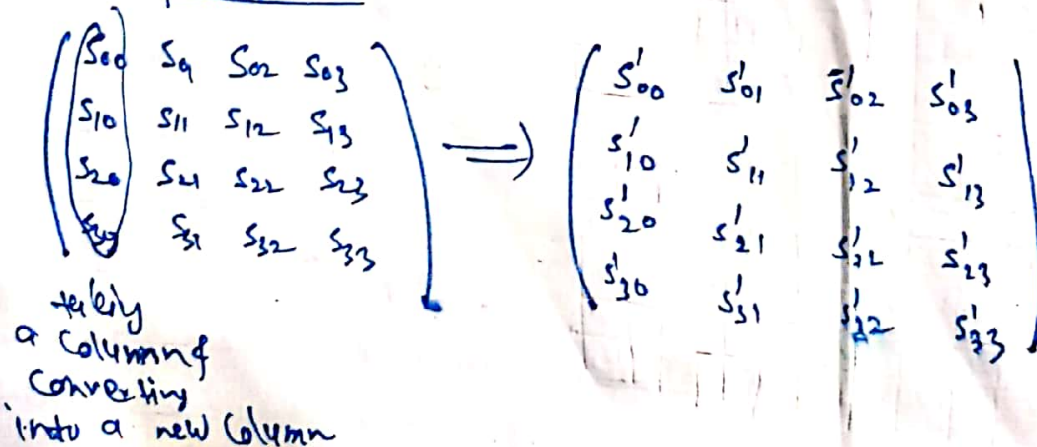 S00 S01 S02 S03
S10 S11 S12 S13
S20 S21 S22 S23
S30 S31 S32 S33
⇒
S'00 S'01 S'02 S'03
S'10 S'11 S'12 S'13
S'20 S'21 S'22 S'23
S'30 S'31 S'32 S'33
taking
a Column &
Converting
into a new Column